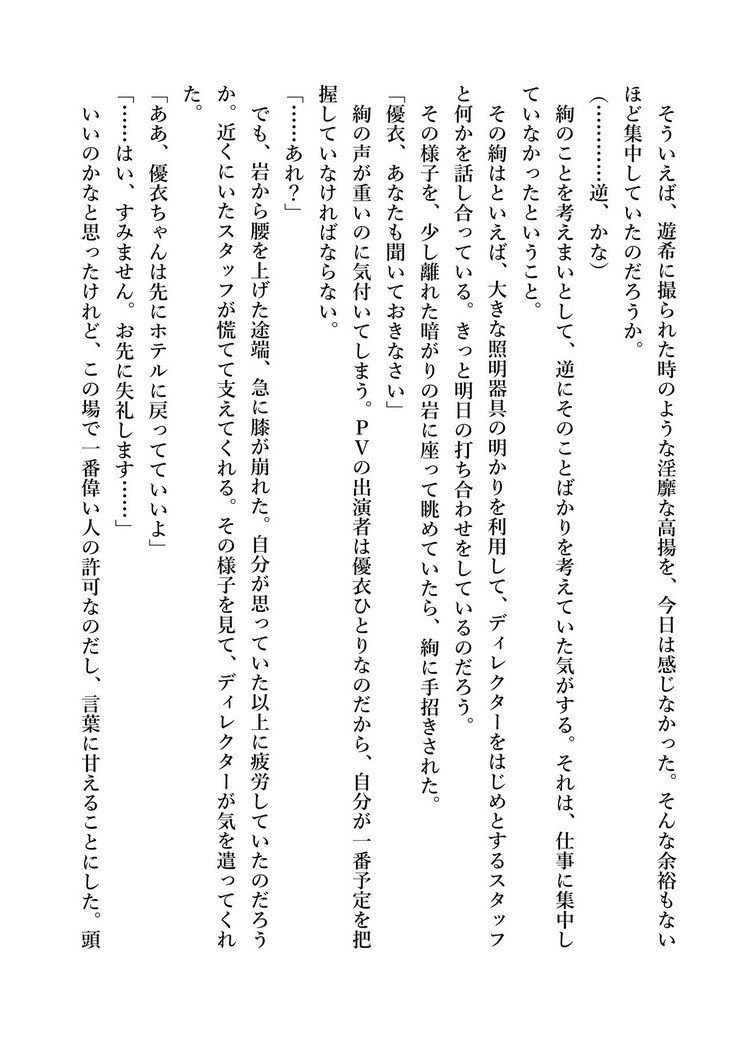 そういえば、遊希に撮られた時のような淫靡な高揚を、今日は感じなかった。そんな余裕もない
ほど集中していたのだろうか。
（…………逆、かな）
絢のことを考えまいとして、逆にそのことばかりを考えていた気がする。それは、仕事に集中し
ていなかったということ。
その絢はといえば、大きな照明器具の明かりを利用して、ディレクターをはじめとするスタッフ
と何かを話し合っている。きっと明日の打ち合わせをしているのだろう。
その様子を、少し離れた暗がりの岩に座って眺めていたら、絢に手招きされた。
「優衣、あなたも聞いておきなさい」
絢の声が重いのに気付いてしまう。ＰＶの出演者は優衣ひとりなのだから、自分が一番予定を把
握していなければならない。
「……あれ？」
でも、岩から腰を上げた途端、急に膝が崩れた。自分が思っていた以上に疲労していたのだろう
か。近くにいたスタッフが慌てて支えてくれる。その様子を見て、ディレクターが気を遣ってくれ
た。
「ああ、優衣ちゃんは先にホテルに戻ってていいよ」
「……はい、すみません。お先に失礼します……」
いいのかなと思ったけれど、この場で一番偉い人の許可なのだし、言葉に甘えることにした。頭